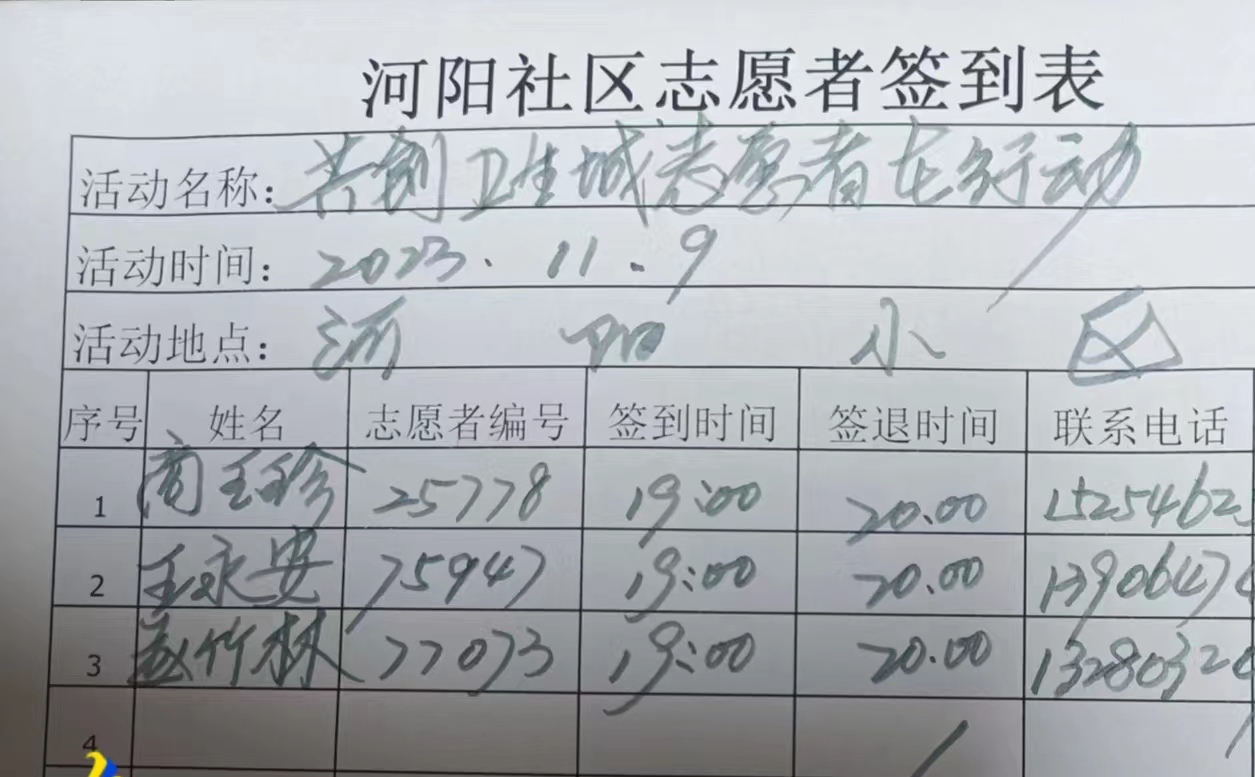 河阳社区志愿者签到表
活动名称：共创卫生城志愿者在行动
活动时间：2023.11.9
活动地点：河阳小区
序号 姓名 志愿者编号 签到时间 签退时间 联系电话
1 商玉珍 25778 19:00 20.00 1525462
2 王永安 75947 19:00 20.00 1390647
3 赵竹林 77073 19:00 20.00 1328032
4